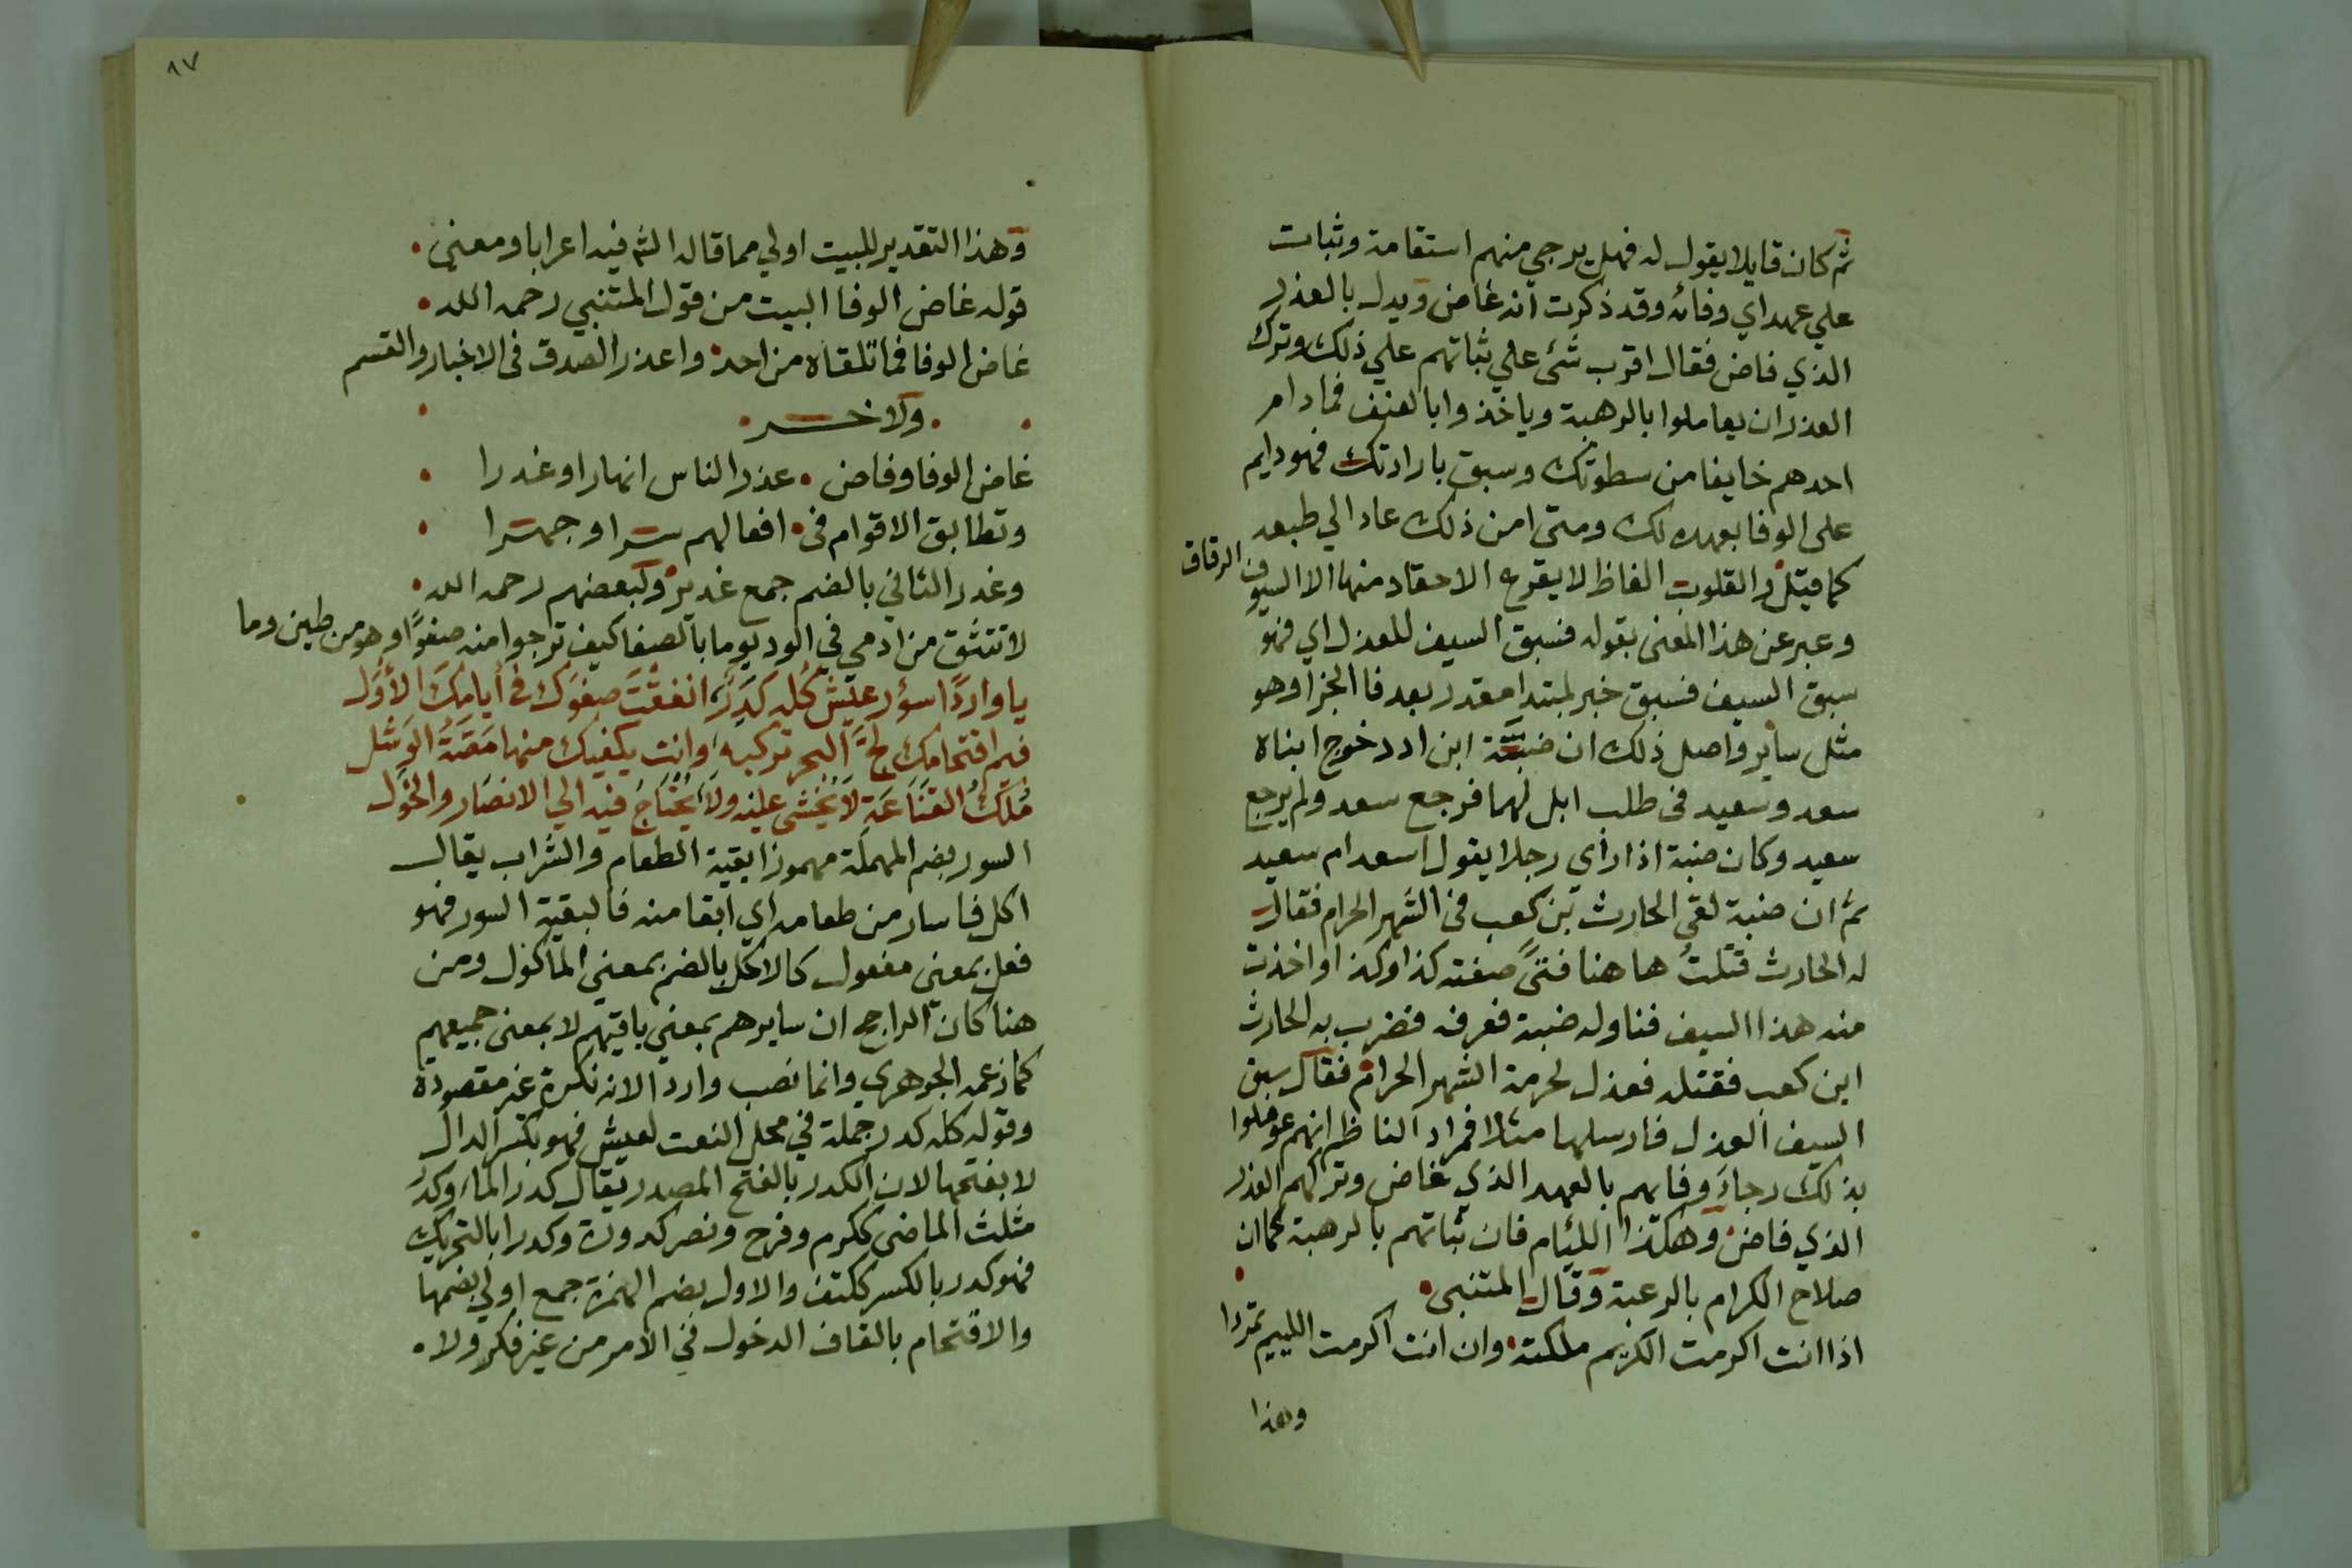 ثم كان قايلا يقول له فهل يرجي منهم استقامة وثبات
علي عهد اي وفائه وقد ذكرت انه غاض وبدل بالغدر
الذي فاض فقال اقرب شئ علي ثباتهم علي ذلك وترك
الغدر ان يعاملوا بالرهبة وياخذوا بالعنف فمادام
احدهم خايفا من سطوتك وسبق بارادتك فهو دايم
على الوفا بعهده لك ومتى امن ذلك عاد الي طبعه
كما قيل والقلوب الفاظ لا يقرح الاحقاد منها الا السيوف الرقاق
وعبر عن هذا المعنى بقوله فسبق السيف للعذل اي فهو
سبق السيف فسبق خبر لمبتدا مقدر بعد فا الجزا وهو
مثل ساير واصل ذلك ان ضبة ابن ادد خرج ابناه
سعد وسعيد في طلب ابل لهما فرجع سعد ولم يرجع
سعيد وكان ضبة اذا رأى رجلا يقول اسعد ام سعيد
ثم ان ضبة لقي الحارث بن كعب في الشهر الحرام فقال
له الحارث قتلتُ هاهنا فتىً صفته كذا وكذا واخذت
منه هذا السيف فناوله ضبة فعرفه فضرب به الحارث
ابن كعب فقتله فعذل لحرمة الشهر الحرام فقال سبق
السيف العذل فارسلها مثلا فمراد الناظر انهم عوملوا
بذلك رجاء وفايهم بالعهد الذي غاض وتركهم الغدر
الذي فاض وهكذا اللئام فان ثباتهم بالرهبة كما ان
صلاح الكرام بالرغبة وقال المتنبي
اذا انت اكرمت الكريم ملكته وان انت اكرمت اللييم تمردا
وهذا
٨٧
وهذا التقدير للبيت اولي مما قاله الشم فيه اعرابا ومعنى
قوله غاض الوفا البيت من قول المتنبي رحمه الله
غاض الوفا فما تلقاه من احد واعذر الصدق في الاخبار والقسم
ولاخر
غاض الوفا وفاض عذر الناس انهارا وغدرا
وتطابق الاقوام في افعالهم سرا وجهرا
وغدر الثاني بالضم جمع غدير ولبعضهم رحمه الله
لا تتثق من ادمي في الود يوما بالصفا كيف ترجوا منه صفوًا وهو من طين وما
يا واردًا سؤر عيش كُله كَدِرٌ انفقْتَ صفوَك في أيامِكَ الأُوَل
فيم اقتحامك لجَّ البحر تركبه وانت يكفيك منها مَصَّةُ الوَشل
مُلكُ القَنَاعَةِ لاَ يُخْشى عليه ولاَ يُحْتَاجُ فيه الي الانصَار والخَوَل
السور بضم المهملة مهموزا بقية الطعام والشراب يقال
اكل فاسار من طعامه اي ابقا منه فالبقية السور فهو
فعل بمعنى مفعول كالاكل بالضم بمعني الماكول ومن
هنا كان الراجح ان سايرهم بمعني باقيهم لا بمعنى جميعهم
كما زعمه الجوهري وانما نصب واردا لانه نكرة غير مقصودة
وقوله كله كدر جملة في محل النعت لعيش فهو بكسر الدال
لا بفتحها لان الكدر بالفتح المصدر يقال كدر الماء وكدرُ
مثلث الماضي ككرم وفرح ونصر كدورة وكدرا بالتحريك
فهو كدر بالكسر ككتف والاول بضم الهمزة جمع اولي بضمها
والاقتحام بالقاف الدخول في الامر من غير فكر ولا